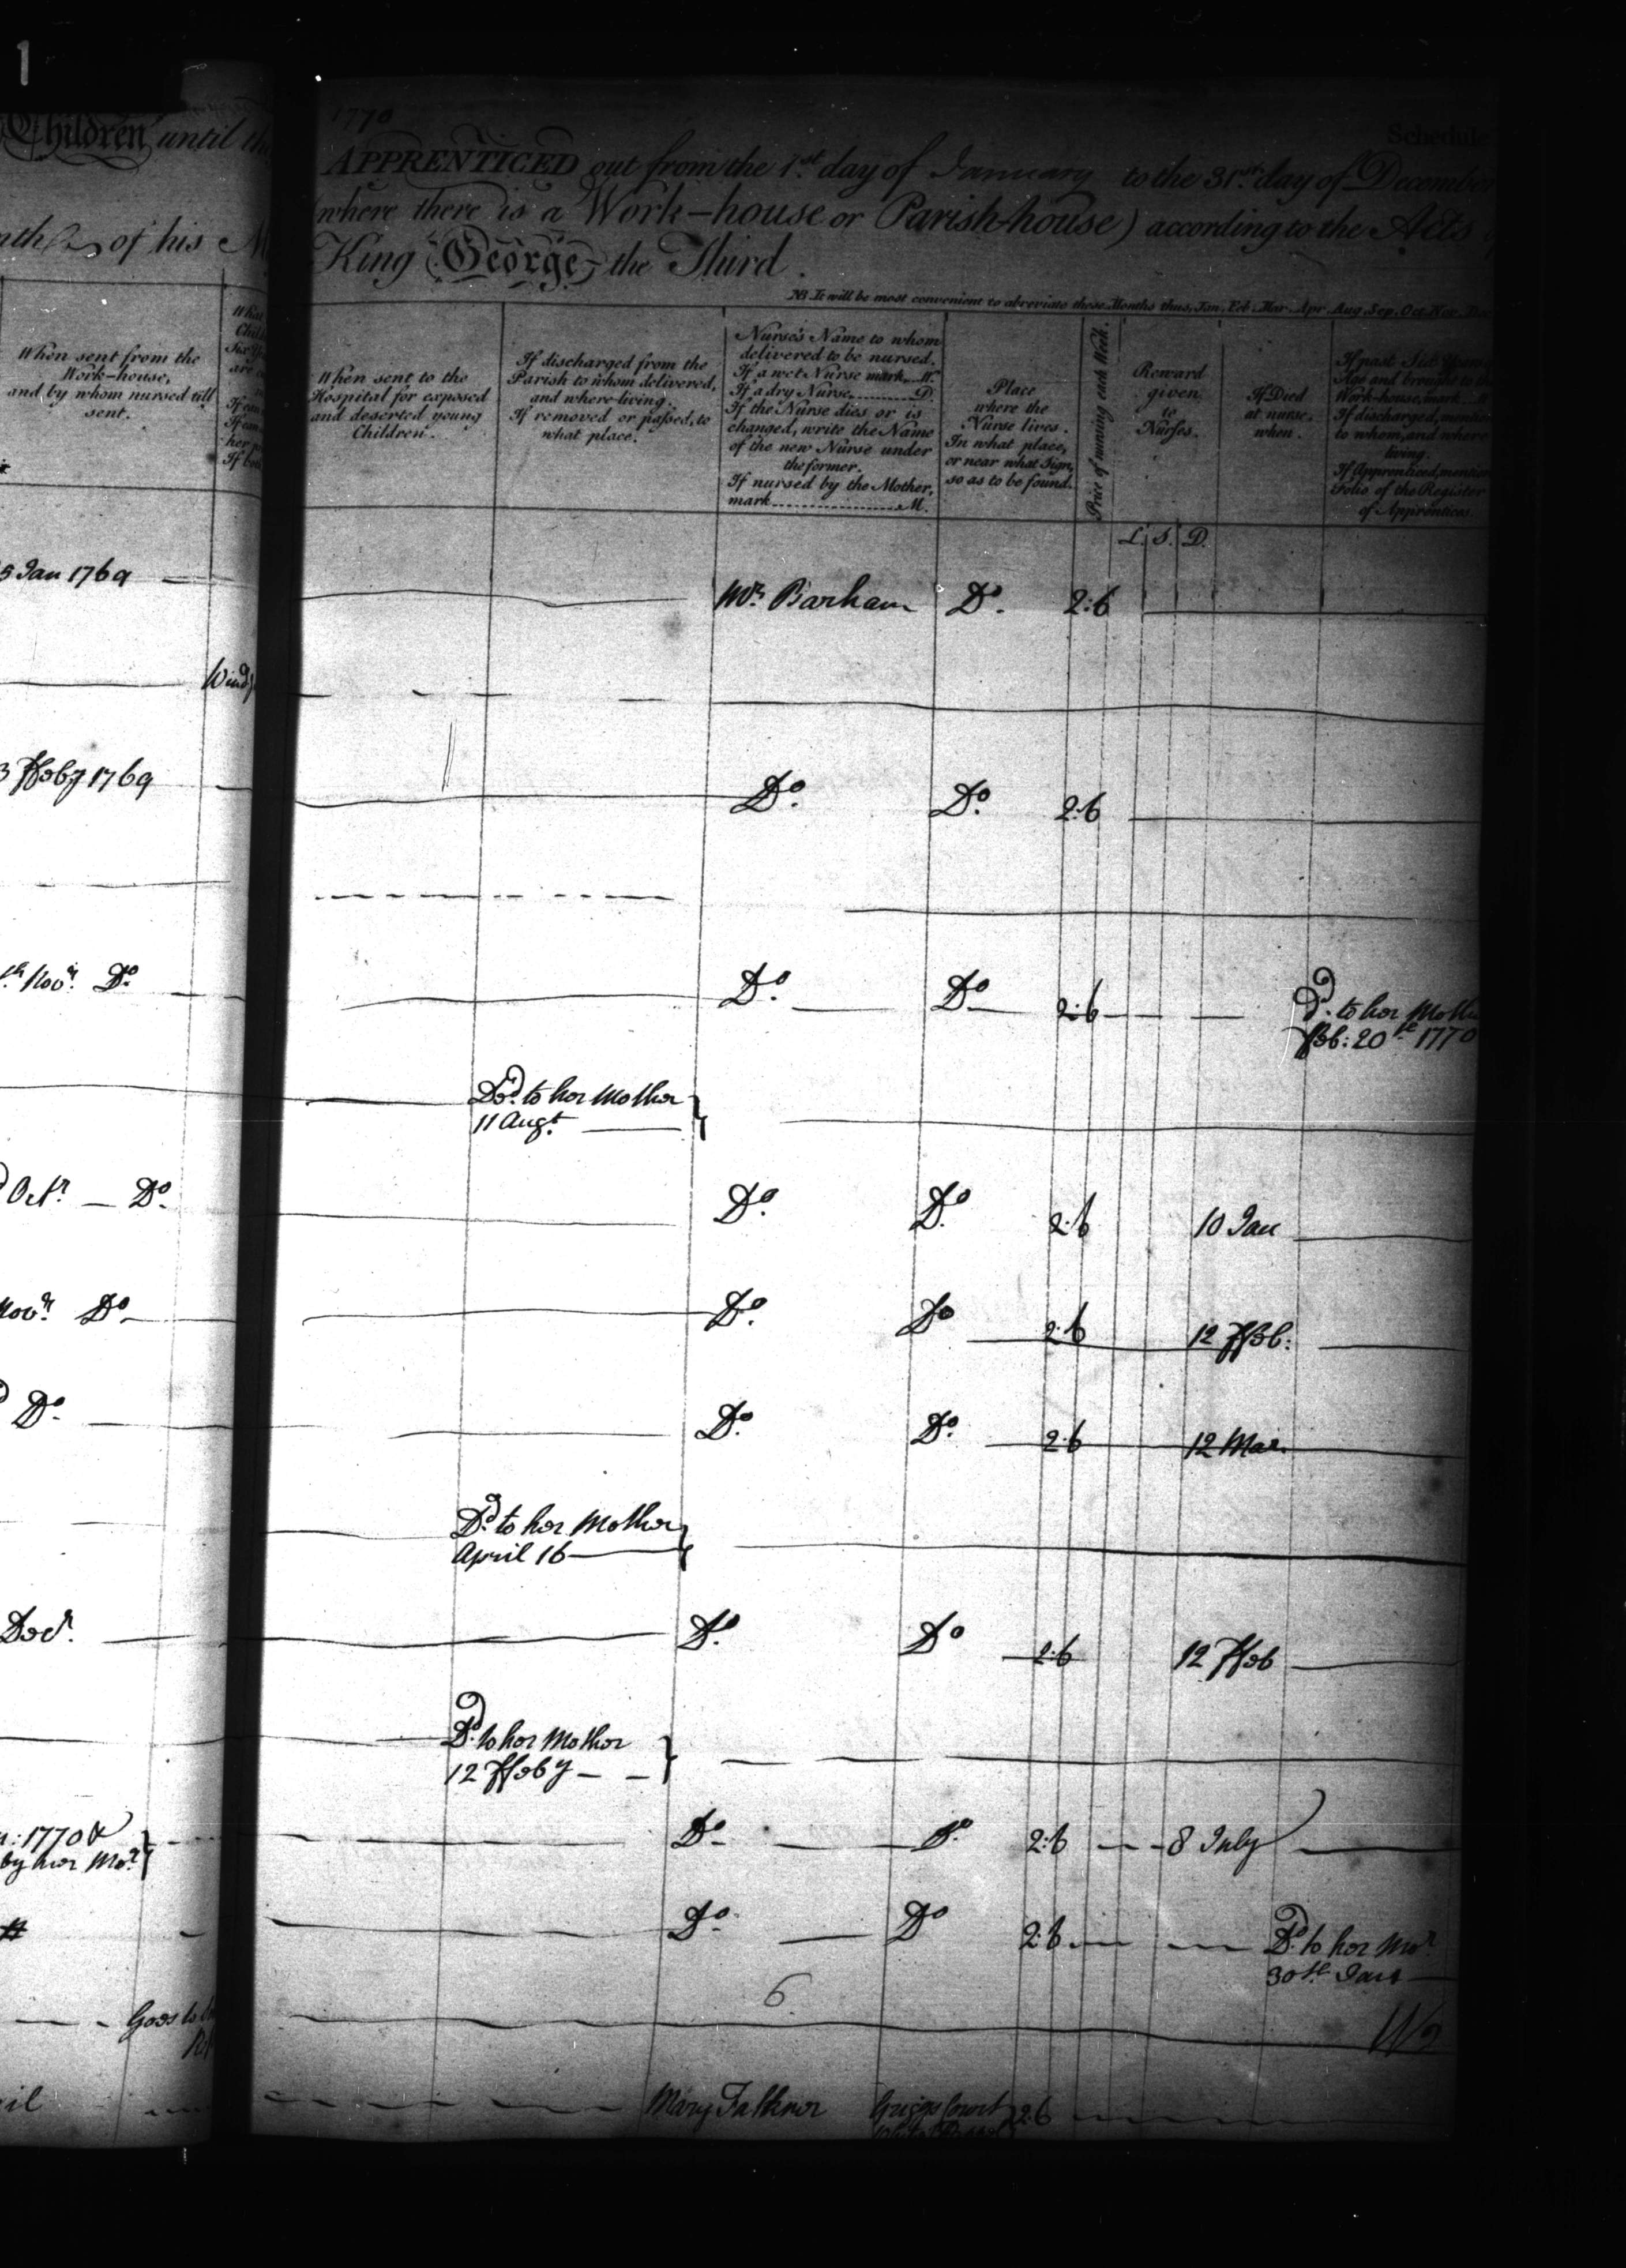 1
Children until
of his
When sent from the
Work-house,
and by whom nursed till
sent.
5 Jan 1769
3 Ffeby 1769
Novr. Do
Octr. — Do.
Novr. Do
Do.
Decr.
1770 &
by her Mor.
Goes to
1770
APPRENTICED out from the 1st. day of January to the 31st. day of December
(where there is a Work-house or Parish-house) according to the Acts
King George the Third.
Schedule
NB It will be most convenient to abreviate these Months thus, Jan. Feb. Mar. Apr. Aug. Sep. Oct. Nov. Dec.
When sent to the
Hospital for exposed
and deserted young
Children.
If discharged from the
Parish to whom delivered,
and where living.
If removed or passed, to
what place.
Nurse's Name to whom
delivered to be nursed.
If a wet Nurse mark W.
If a dry Nurse D.
If the Nurse dies or is
changed, write the Name
of the new Nurse under
the former.
If nursed by the Mother,
mark M.
Place
where the
Nurse lives.
In what place,
or near what Sign,
so as to be found.
Price of nursing each Week.
Reward
given
to
Nurses.
If Died
at nurse
when.
If past Six Years
Age and brought to the
Work-house, mark
If discharged, mention
to whom, and where
living.
If Apprenticed, mention
Folio of the Register
of Apprentices.
L. S. D.
Mrs. Barham Do. 2:6
Do. Do. 2:6
Do. Do. 2:6 Dd. to her Mother
Feb: 20th 1770
Dd. to her Mother
11 Augt.
Do. Do. 2:6 10 Jan
Do. Do 2:6 12 Ffeb:
Do. Do. 2:6 12 Mar.
Dd. to her Mother
April 16
Do. Do 2:6 12 Ffeb
Dd. to her Mother
12 Ffeby
Do. Do. 2:6 8 July
Do. Do 2:6 Dd. to her Mor.
30th.
6
Mary Falkner Griggs Court 2:6